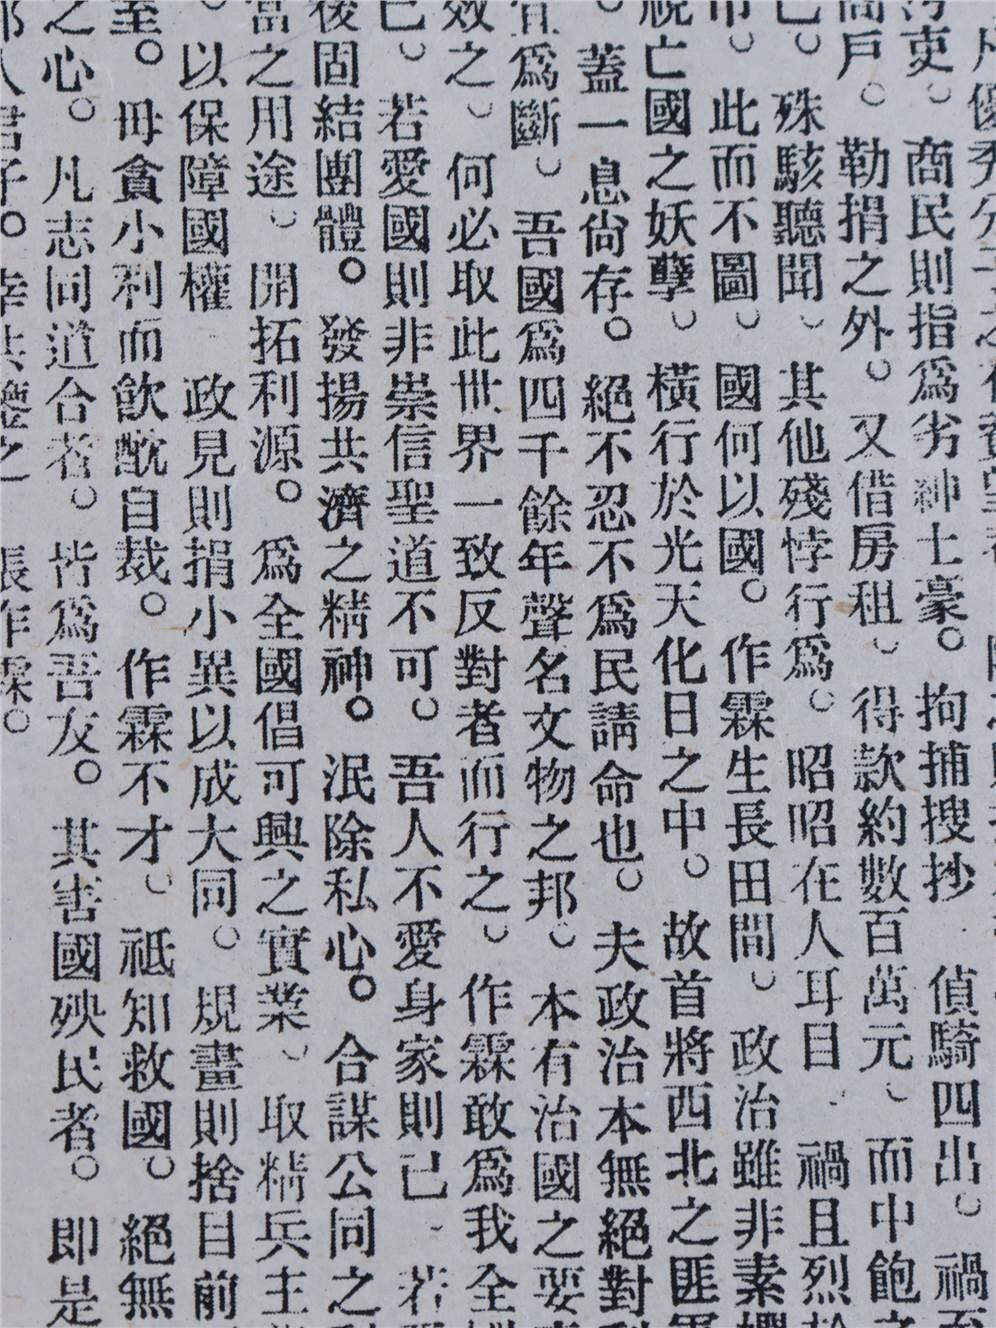 優秀分子之
污吏。商民則指爲劣紳土豪。拘捕搜抄 偵騎四出。禍至
商戶。勒捐之外。又借房租。得款約數百萬元、而中飽之
已。殊駭聽聞、其他殘悖行爲。昭昭在人耳目 禍且烈於
市。此而不圖、國何以國。作霖生長田間。政治雖非素
視亡國之妖孽、橫行於光天化日之中。故首將西北之匪軍
。蓋一息尙存。絕不忍不爲民請命也。夫政治本無絕對
宜爲斷。吾國爲四千餘年聲名文物之邦。本有治國之要
效之。何必取此世界一致反對者而行之。作霖敢爲我全
已。若愛國則非崇信聖道不可。吾人不愛身家則已 若
後固結團體。發揚共濟之精神。泯除私心。合謀公同之
當之用途。開拓利源。爲全國倡可興之實業、取精兵主
。以保障國權 政見則捐小異以成大同。規畫則捨目前
至。毋貪小利而飮酖自裁。作霖不才。祇知救國。絕無
之心。凡志同道合者。皆爲吾友。其害國殃民者。即是
邦人君子。幸共鑒之 張作霖。